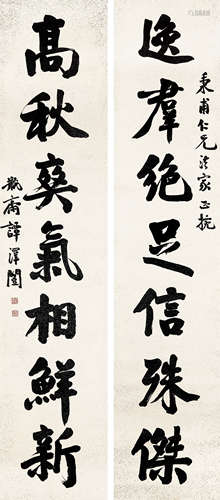 秉甫仁兄法家正挽
逸羣絕足信殊傑
高秋爽氣相鮮新
瓶齋譚澤闓